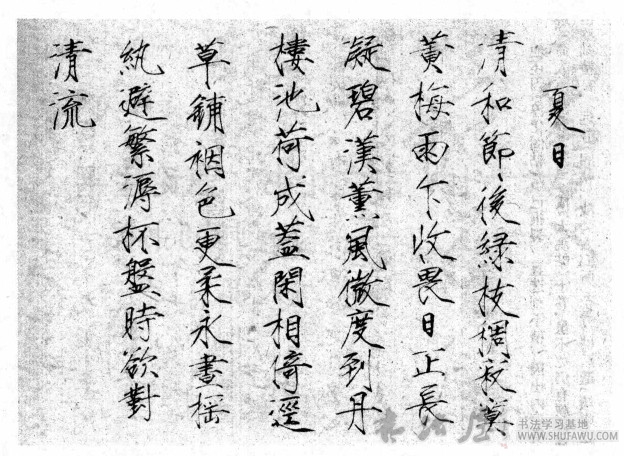 夏日
清和節後綠枝稠寂寞
黃梅雨乍收畏日正長
凝碧漢薰風微度到丹
樓池荷成蓋閑相倚徑
草舖裀色更柔永晝搖
紈避繁溽杯盤時欲對
清流
书法屋
书法学习基地
WWW.SHUFAWU.COM